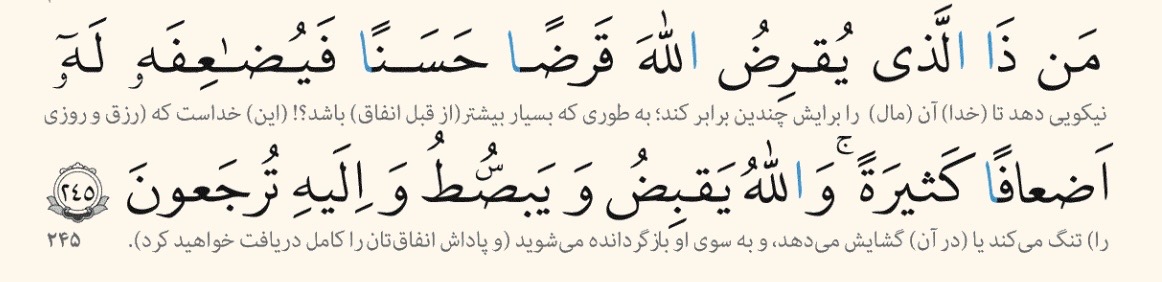 مَن ذَا الَّذی یُقرِضُ اللّٰهَ قَرضًا حَسَنًا فَیُضـٰعِفَهو لَهٓو
نیکویی دهد تا (خدا) آن (مال) را برایش چندین برابر کند؛ به طوری که بسیار بیشتر(از قبل انفاق) باشد؟! (این) خداست که (رزق و روزی
اَضعافًا کَثیرَةً ۚ وَ اللّٰهُ یَقبِضُ وَ یَبصُۜطُ وَ اِلَیهِ تُرجَعونَ ٢٤٥
را) تنگ می‌کند یا (در آن) گشایش می‌دهد، و به سوی او بازگردانده می‌شوید (و پاداش انفاق‌تان را کامل دریافت خواهید کرد). ۲۴۵